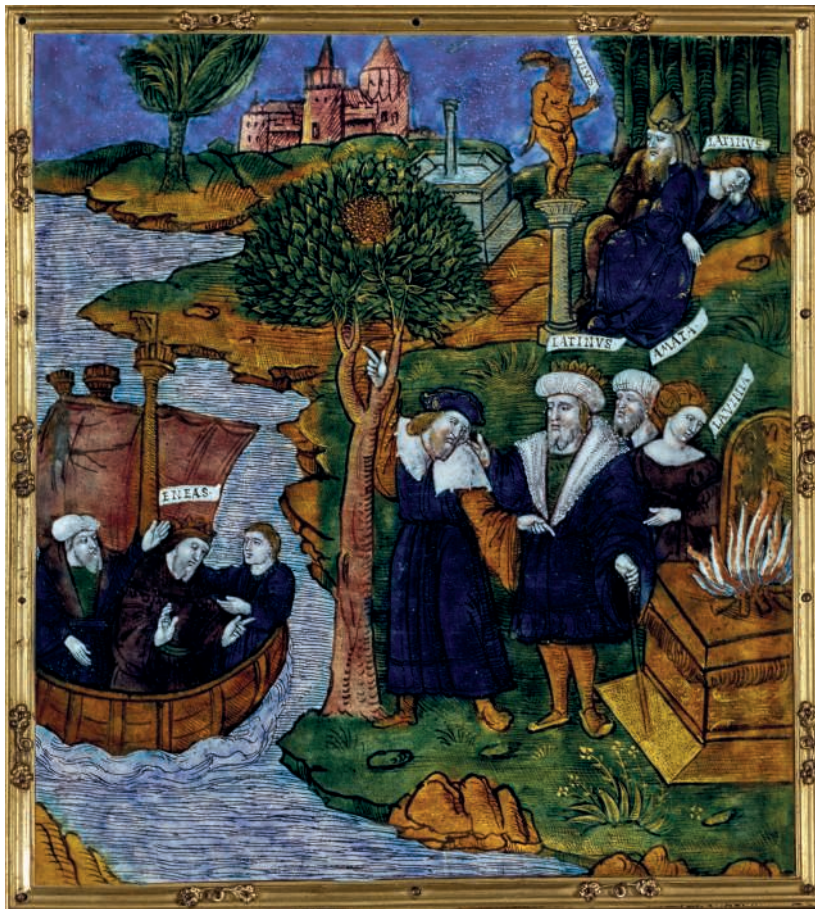 FAVNVS
LATINVS
LATINVS
AMATA·
LAVINIA
ENEAS·